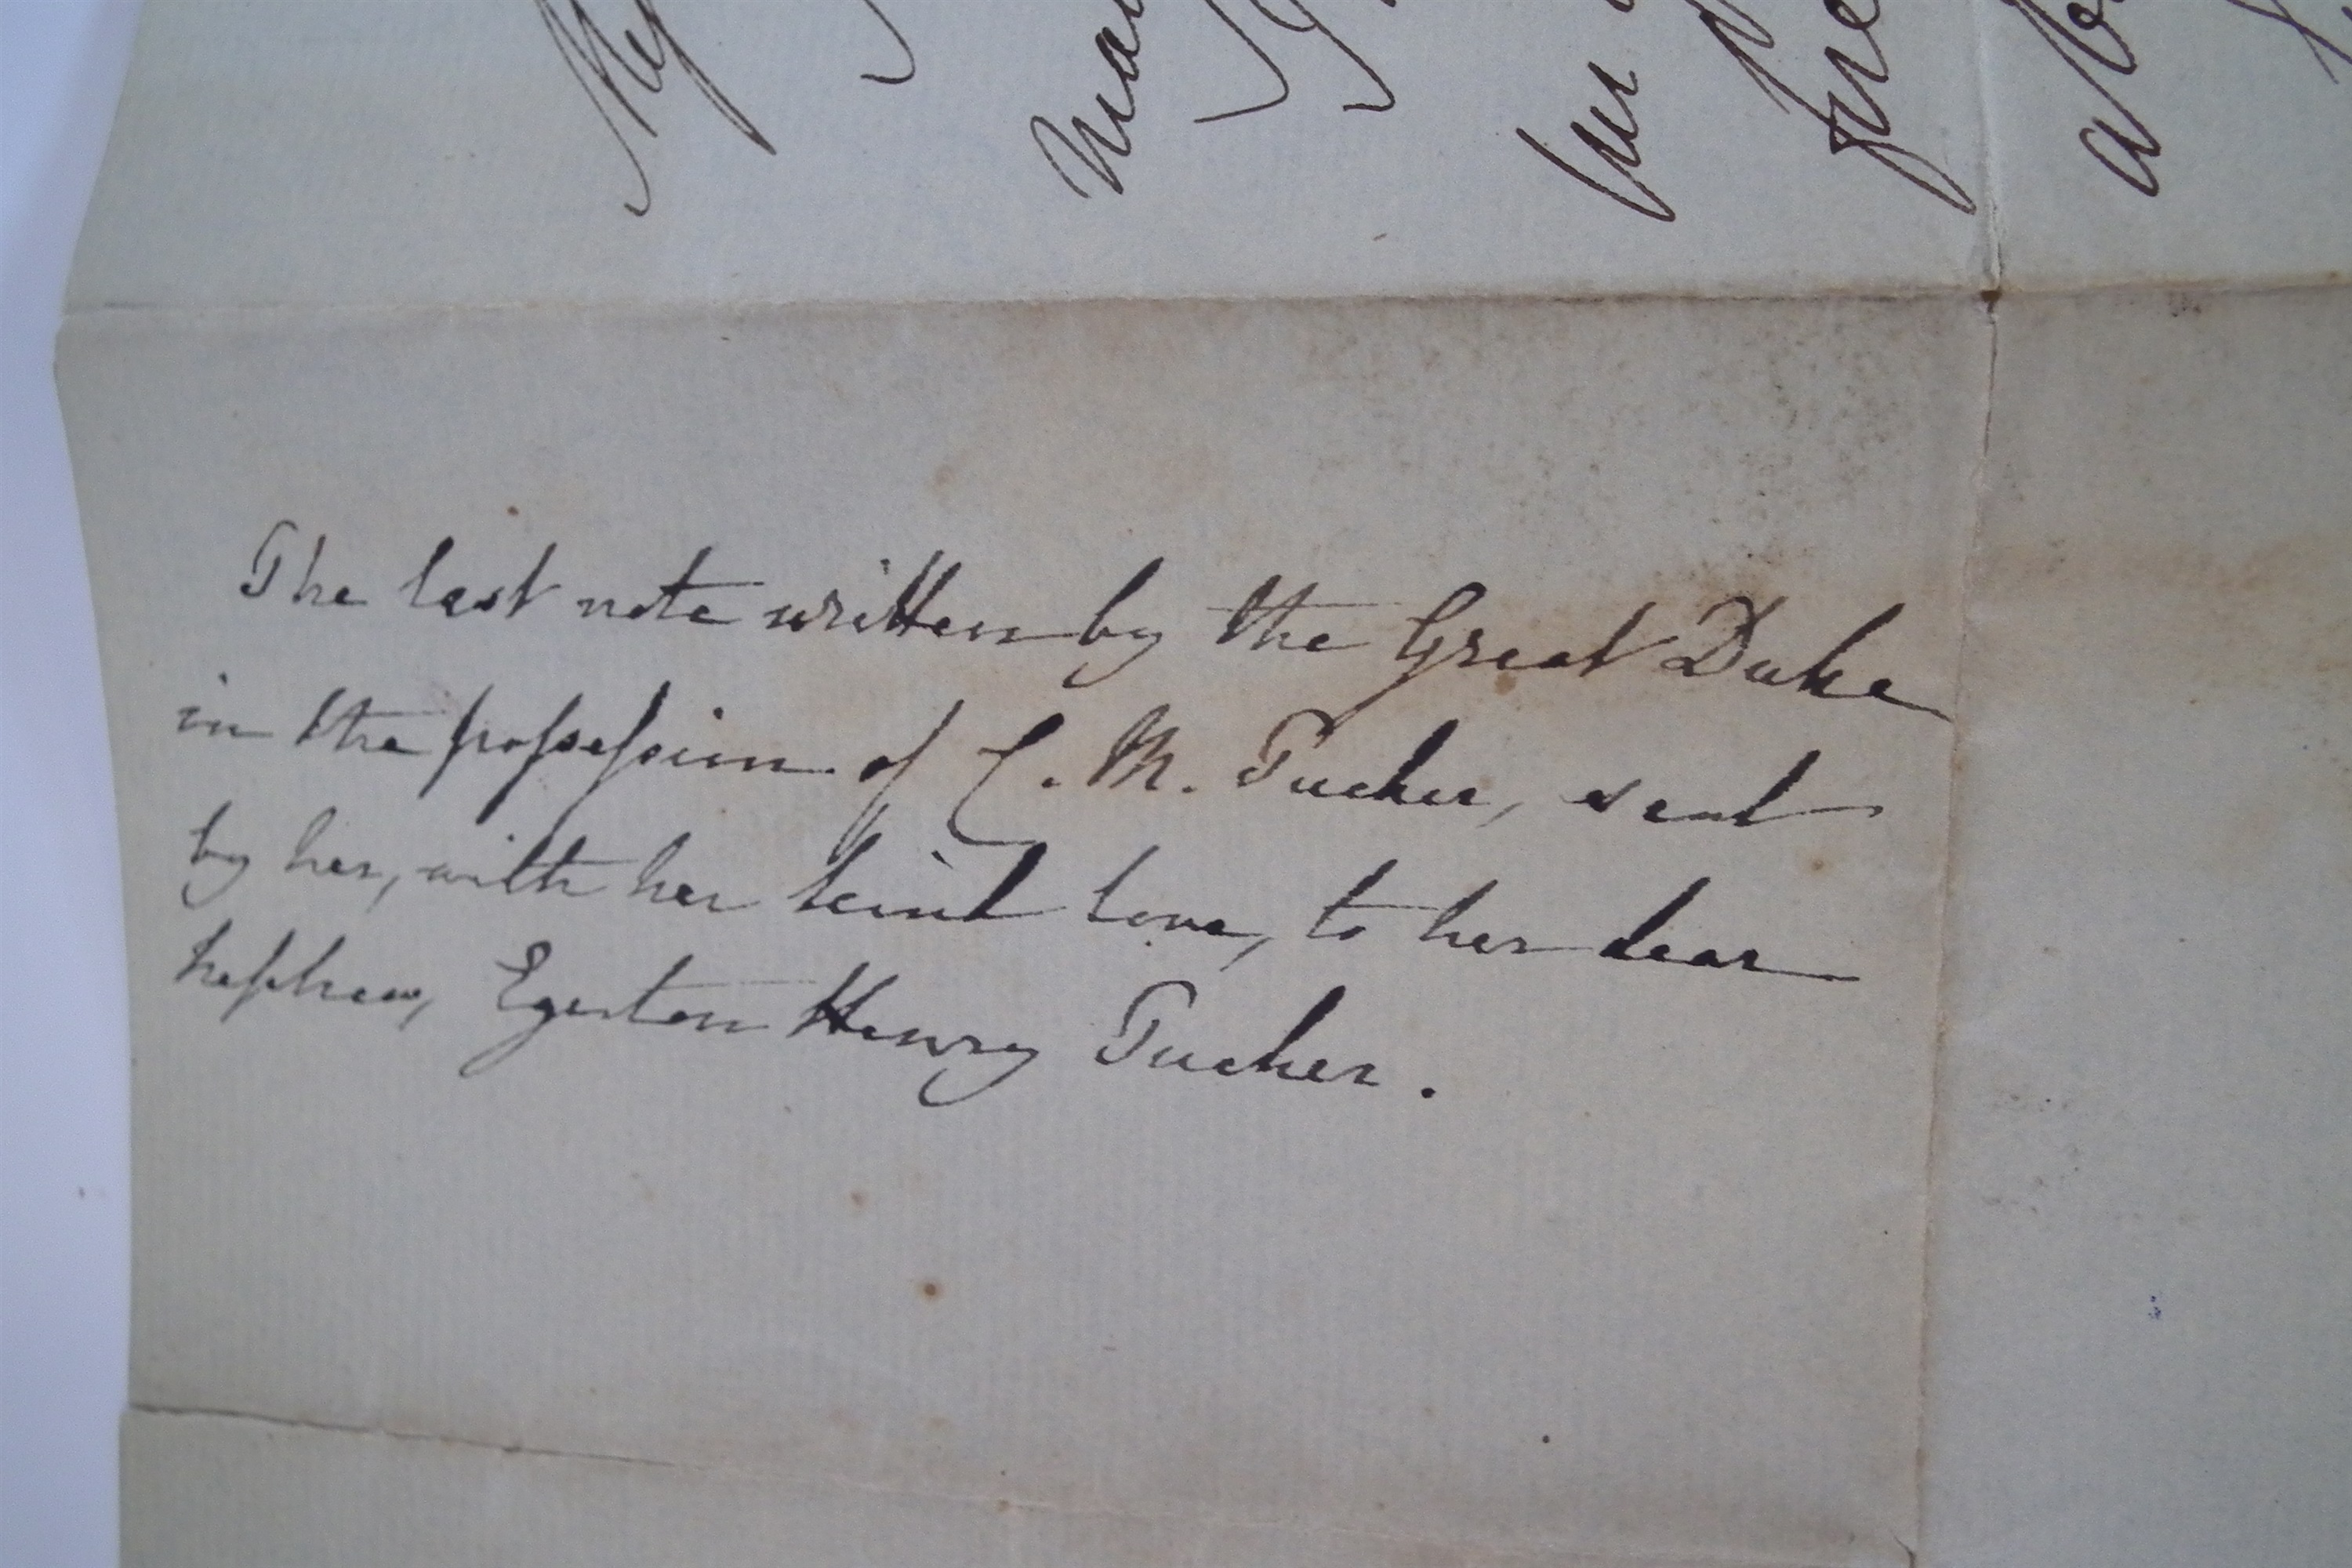 The last note written by the Great Duke
in the possession of C. M. Tucker, sent
by her, with her kind love, to her dear
nephew, Egerton Henry Tucker.